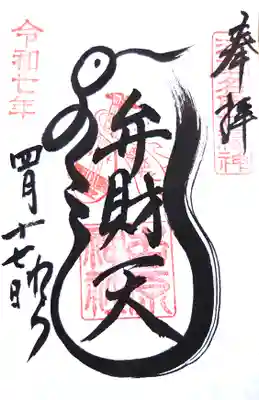 奉拝
弁財天
令和七年
四月十七日